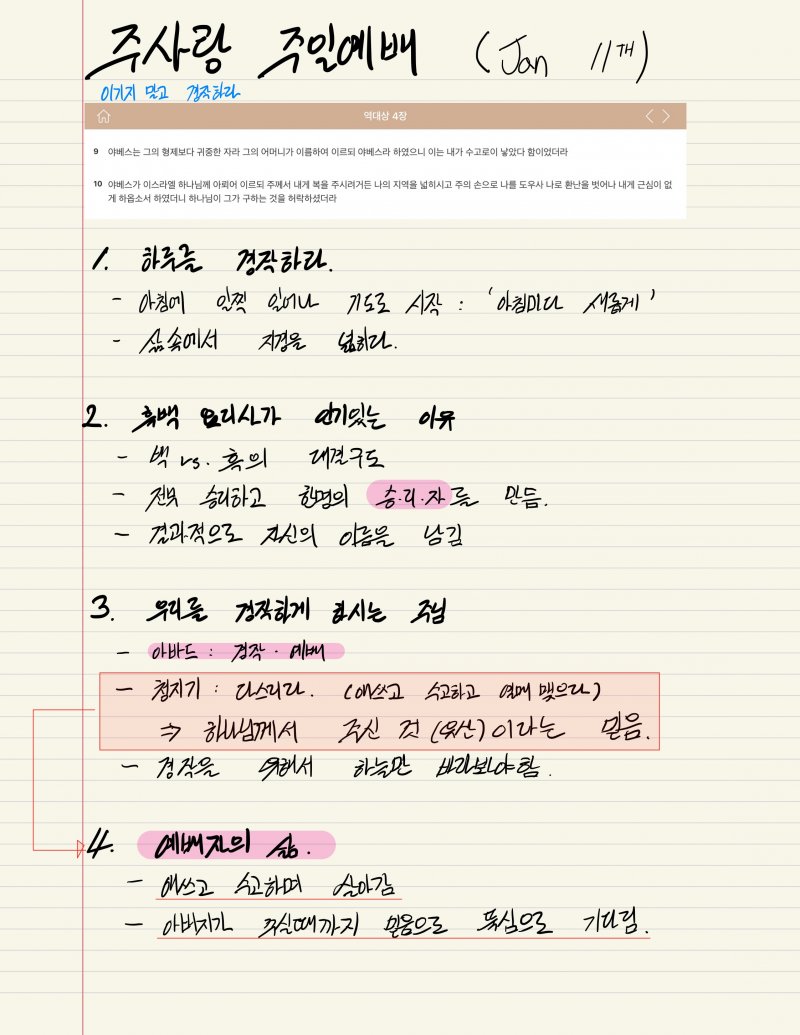 주사랑 주일예배 (Jan 11개)
이기지 말고 경작하라
역대상 4장
9 야베스는 그의 형제보다 귀중한 자라 그의 어머니가 이름하여 이르되 야베스라 하였으니 이는 내가 수고로이 낳았다 함이었더라
10 야베스가 이스라엘 하나님께 아뢰어 이르되 주께서 내게 복을 주시려거든 나의 지역을 넓히시고 주의 손으로 나를 도우사 나로 환난을 벗어나 내게 근심이 없
게 하옵소서 하였더니 하나님이 그가 구하는 것을 허락하셨더라
1. 하루를 경작하라.
- 아침에 일찍 일어나 기도로 시작 : '아침마다 새롭게'
- 삶속에서 지경을 넓히다.
2. 흑백 요리사가 인기있는 이유
- 백 vs. 흑의 대결구도
- 전부 승리하고 한명의 승·리·자를 만듬.
- 결과적으로 자신의 이름을 남김
3. 우리를 경작하게 하시는 주님
- 아바드 : 경작 · 예배
- 청지기 : 다스리라. (애쓰고 수고하고 열매 맺으라)
⇒ 하나님께서 주신 것 (유산)이라는 믿음.
- 경작을 위해서 하늘만 바라봐야함.
4. 예배자의 삶.
- 애쓰고 수고하며 살아감
- 아버지가 주실때까지 믿음으로 뚝심으로 기다림.